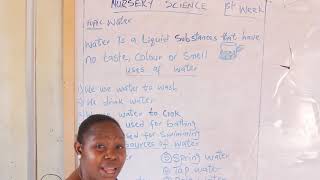 NURSERY SCIENCE 1st Week
Topic Water
Water Is a Liquid Substances that have
no taste, Colour or Smell
uses of water
1) We use water to wash
2) We drink water
water to Cook
used for bathing
used for Swimming
Sources of water
② Spring water
③ Tap water